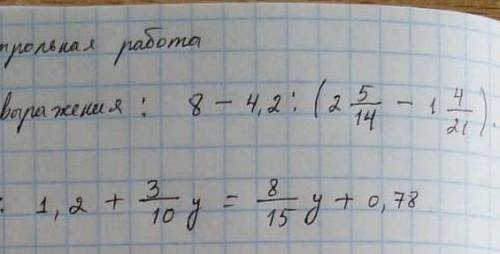 трольная работа
выражения: 8 - 4,2 : (2 5/14 - 1 4/21).
: 1,2 + 3/10 y = 8/15 y + 0,78